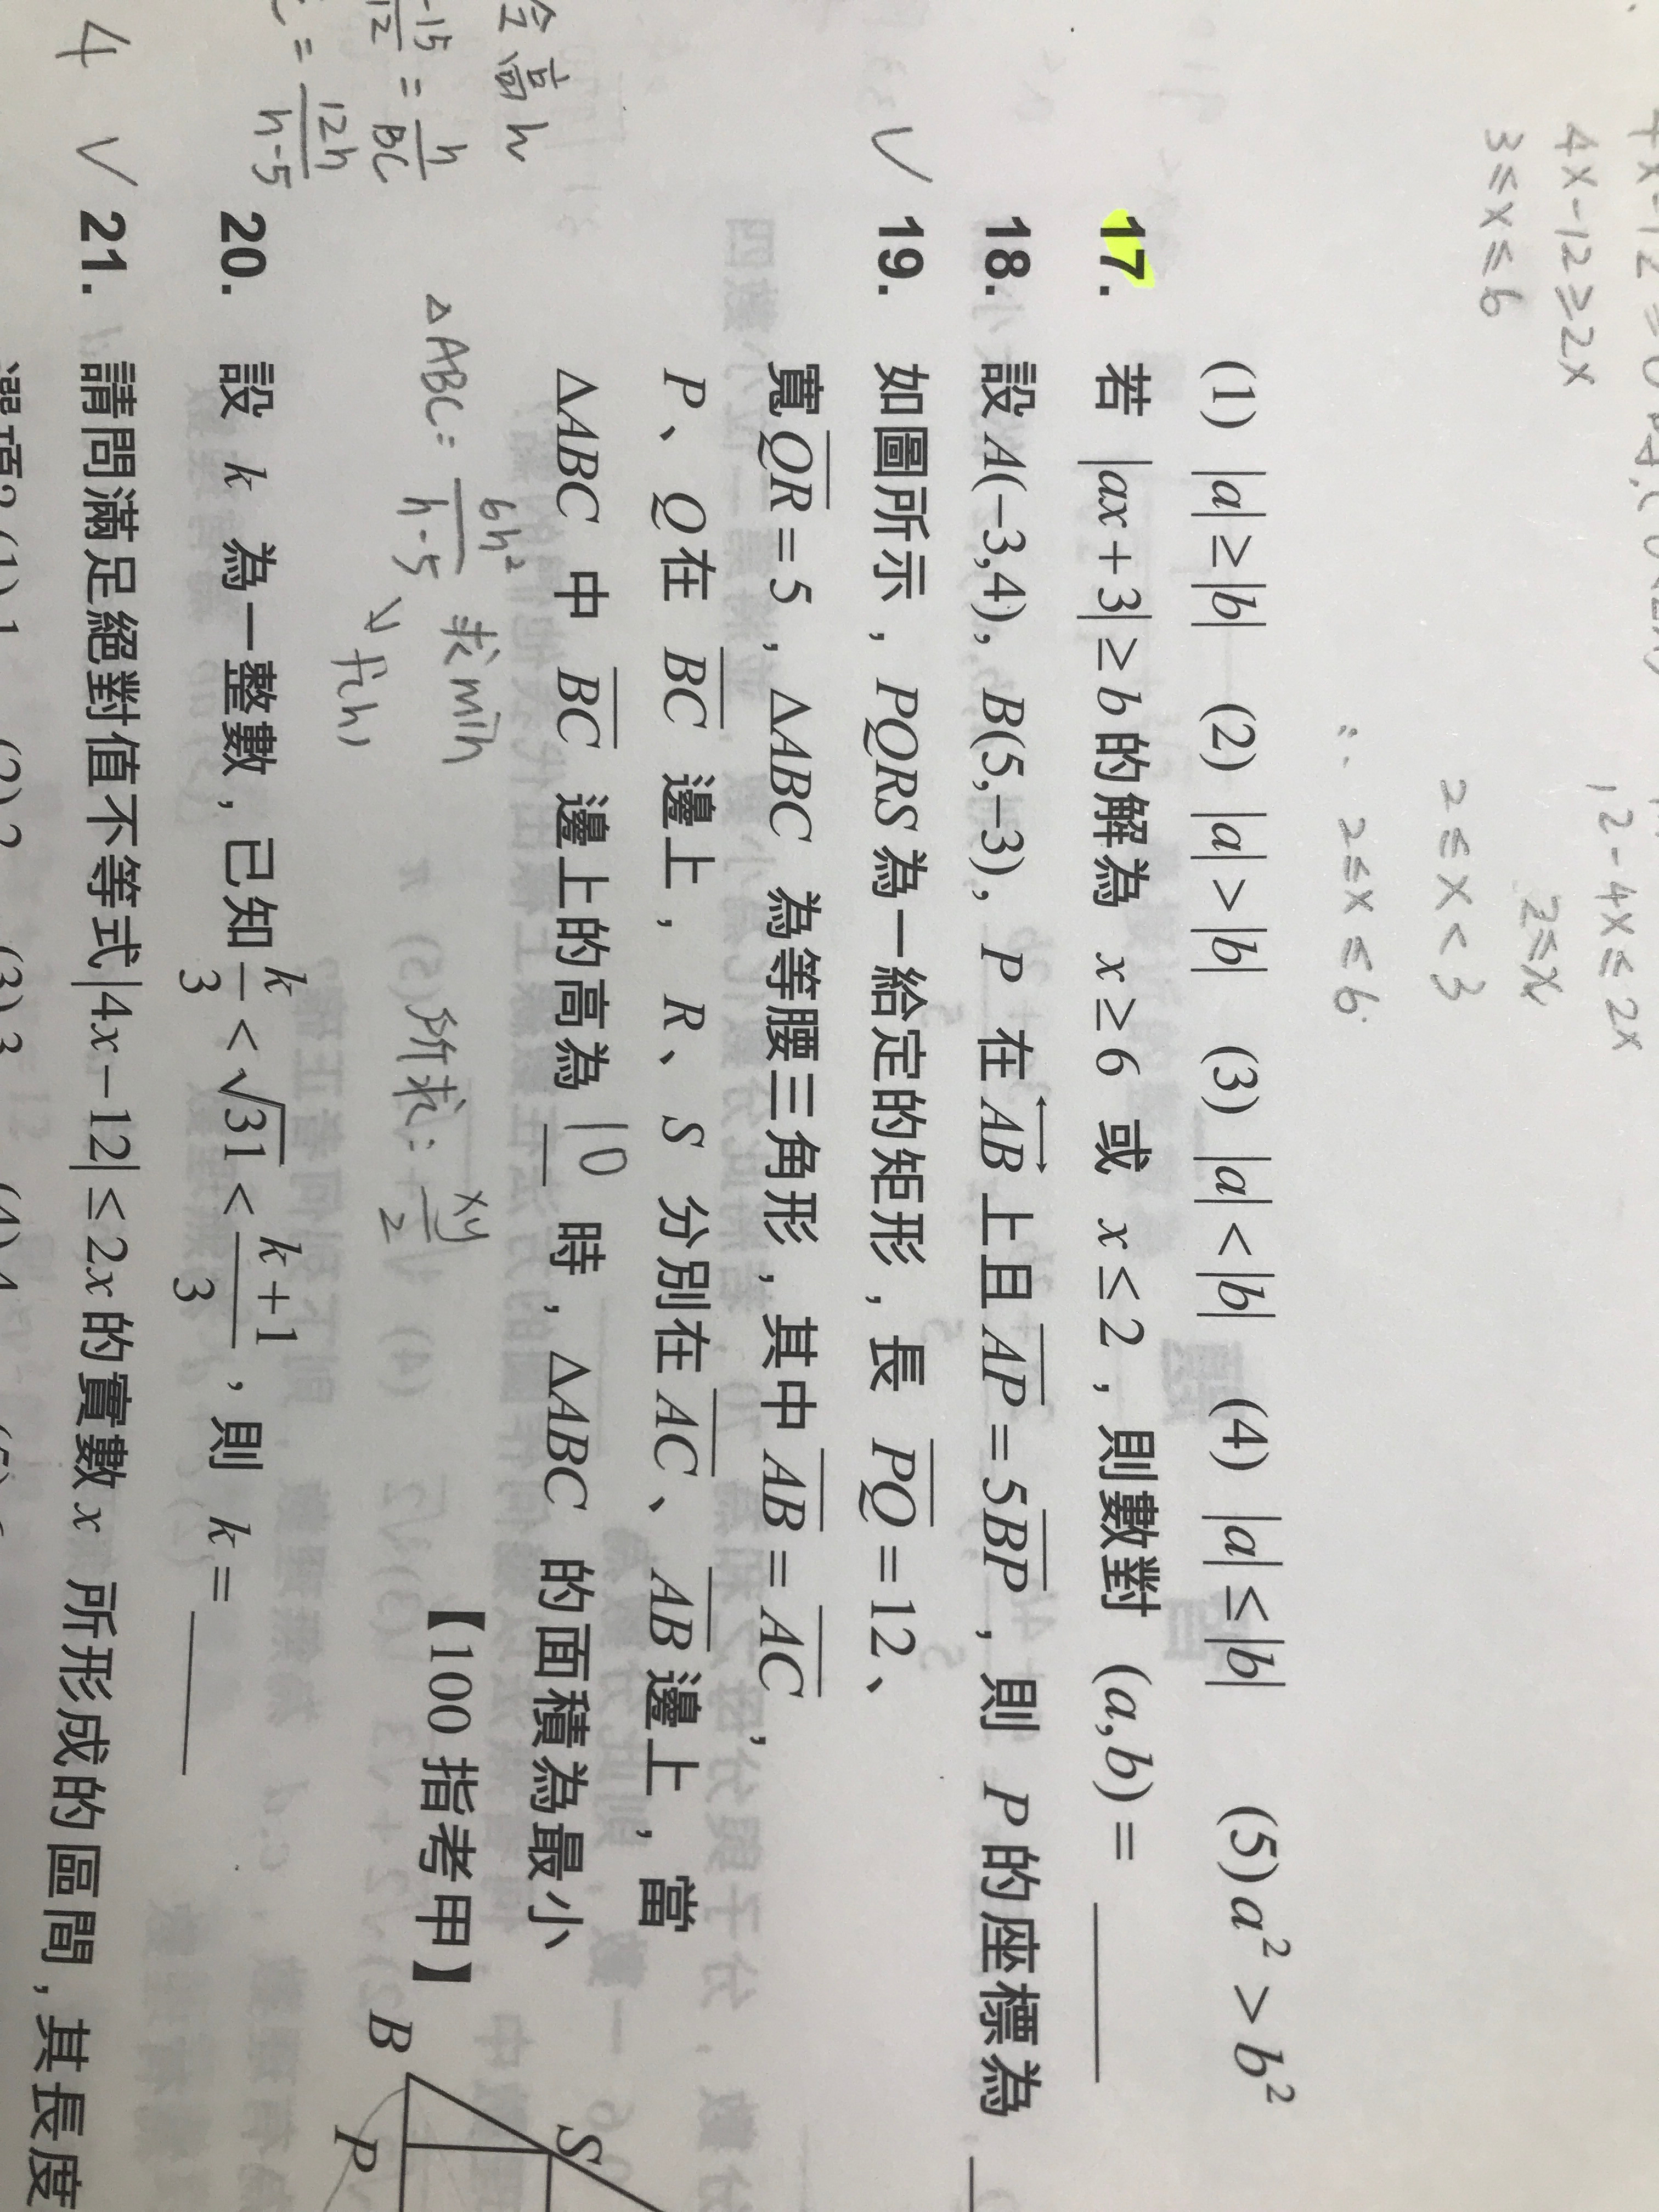 4x-12≥2x
3≤x≤6
12-4x≤2x
2≤x
2≤x<3
∴ 2≤x≤6
(1) |a|≥|b| (2) |a|>|b| (3) |a|<|b| (4) |a|≤|b| (5) a²>b²
17. 若 |ax+3|≥b的解為 x≥6 或 x≤2，則數對 (a,b)=
18. 設A(-3,4), B(5,-3), P 在 AB 上且 AP=5BP，則 P的座標為
19. 如圖所示，PQRS為一給定的矩形，長 PQ=12、
寬QR=5，△ABC 為等腰三角形，其中AB=AC，
P、Q在 BC 邊上，R、S 分別在AC、AB邊上，當
△ABC 中 BC 邊上的高為 10 時，△ABC 的面積為最小
【100指考甲】
全高h
-15/12 = h/BC
= 12h/h-5
△ABC= 6h²/h-5 求min
f(h)
所求: xy/2
B
S
P
20. 設 k 為一整數，已知 k/3<√31<(k+1)/3，則 k=
4
21. 請問滿足絕對值不等式|4x-12|≤2x的實數x 所形成的區間，其長度